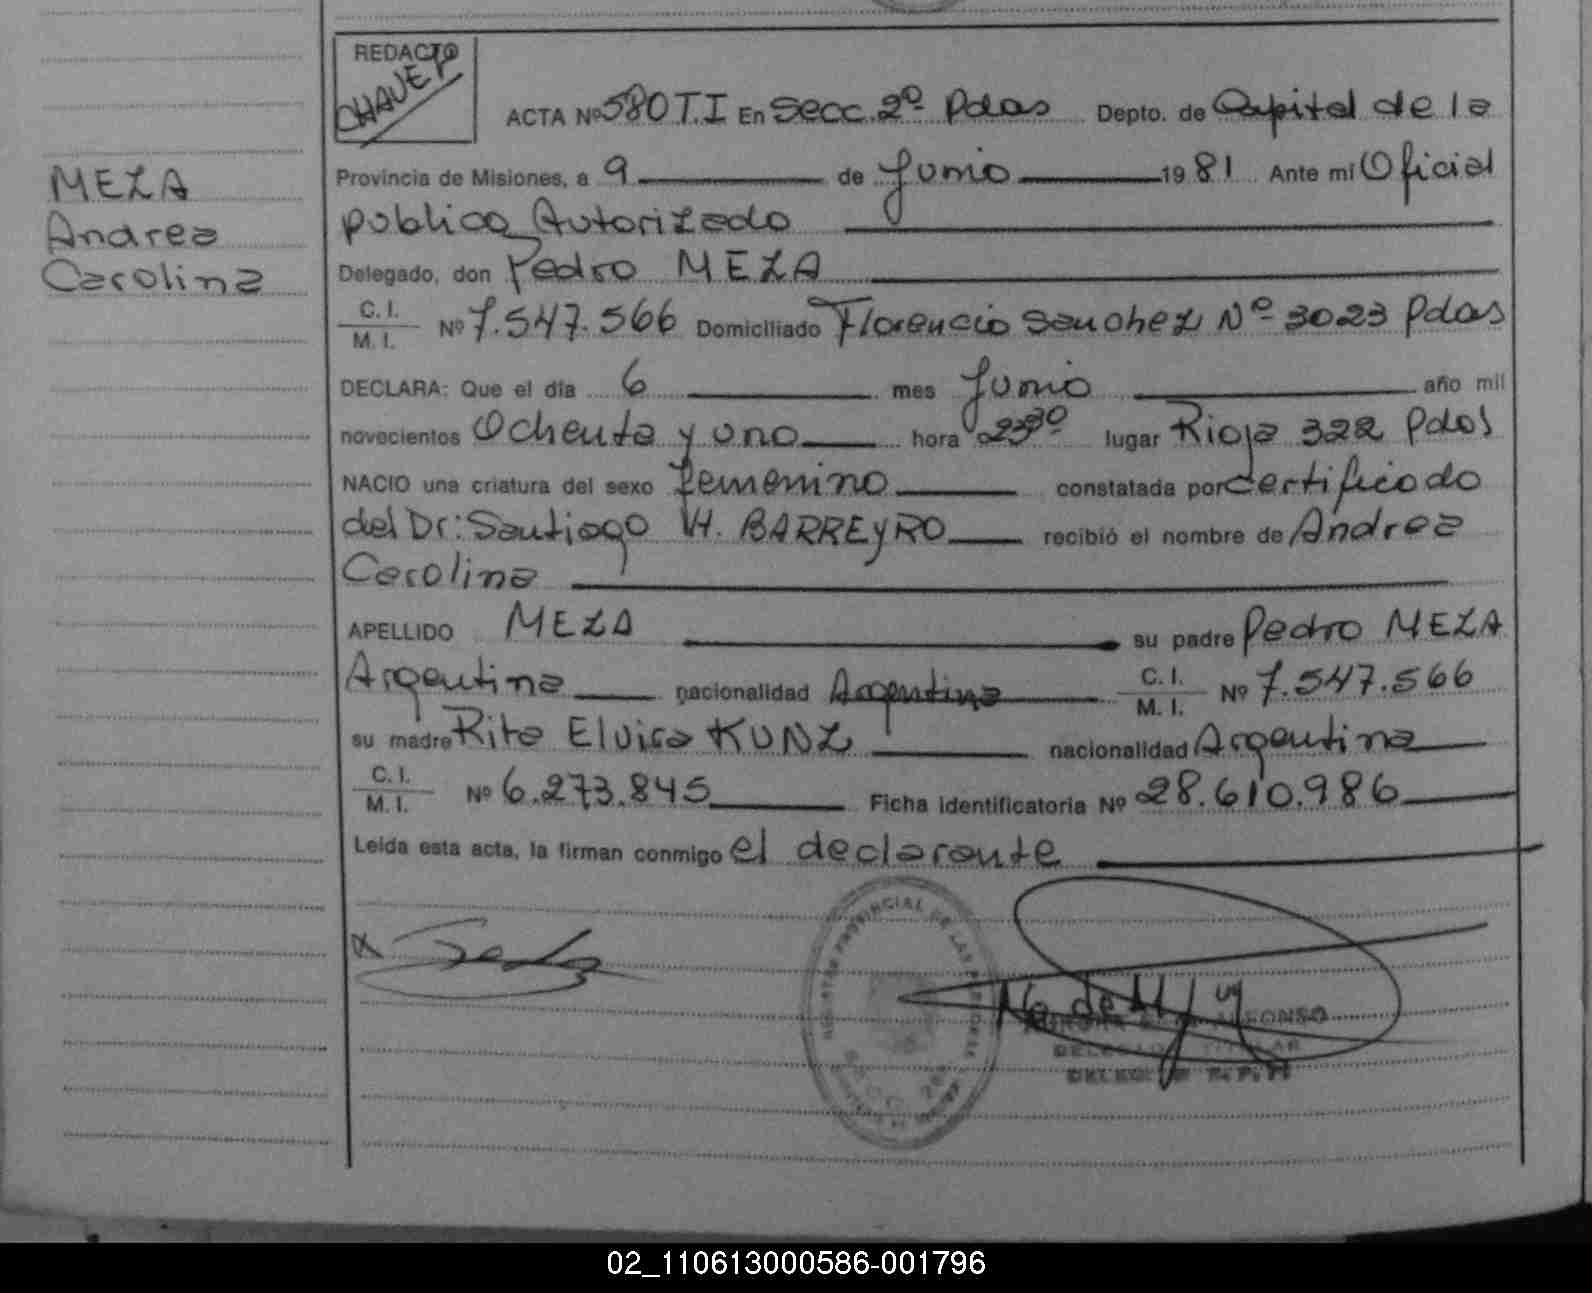 REDACTO
CHAVEZ
ACTA Nº 580 T.I En Secc. 2º Pdas Depto. de Capital de la
MEZA
Andrea
Carolina
Provincia de Misiones, a 9 de Junio 1981 Ante mi Oficial
publico Autorizado
Delegado, don Pedro MEZA
C. I.
M. I. Nº 7.547.566 Domiciliado Florencio Sanchez Nº 3023 Pdas
DECLARA: Que el día 6 mes Junio año mil
novecientos Ochenta y uno hora 23³⁰ lugar Rioja 322 Pdas
NACIO una criatura del sexo femenino constatada por certificado
del Dr: Santiago H. BARREyRO recibió el nombre de Andrea
Carolina
APELLIDO MEZA su padre Pedro MEZA
Argentina nacionalidad Argentina C. I.
M. I. Nº 7.547.566
su madre Rita Elvira KUNZ nacionalidad Argentina
C. I.
M. I. Nº 6.273.845 Ficha identificatoria Nº 28.610.986
Leída esta acta, la firman conmigo el declarante
REGISTRO PROVINCIAL DE LAS PERSONAS
DELEGADO TITULAR
02_110613000586-001796